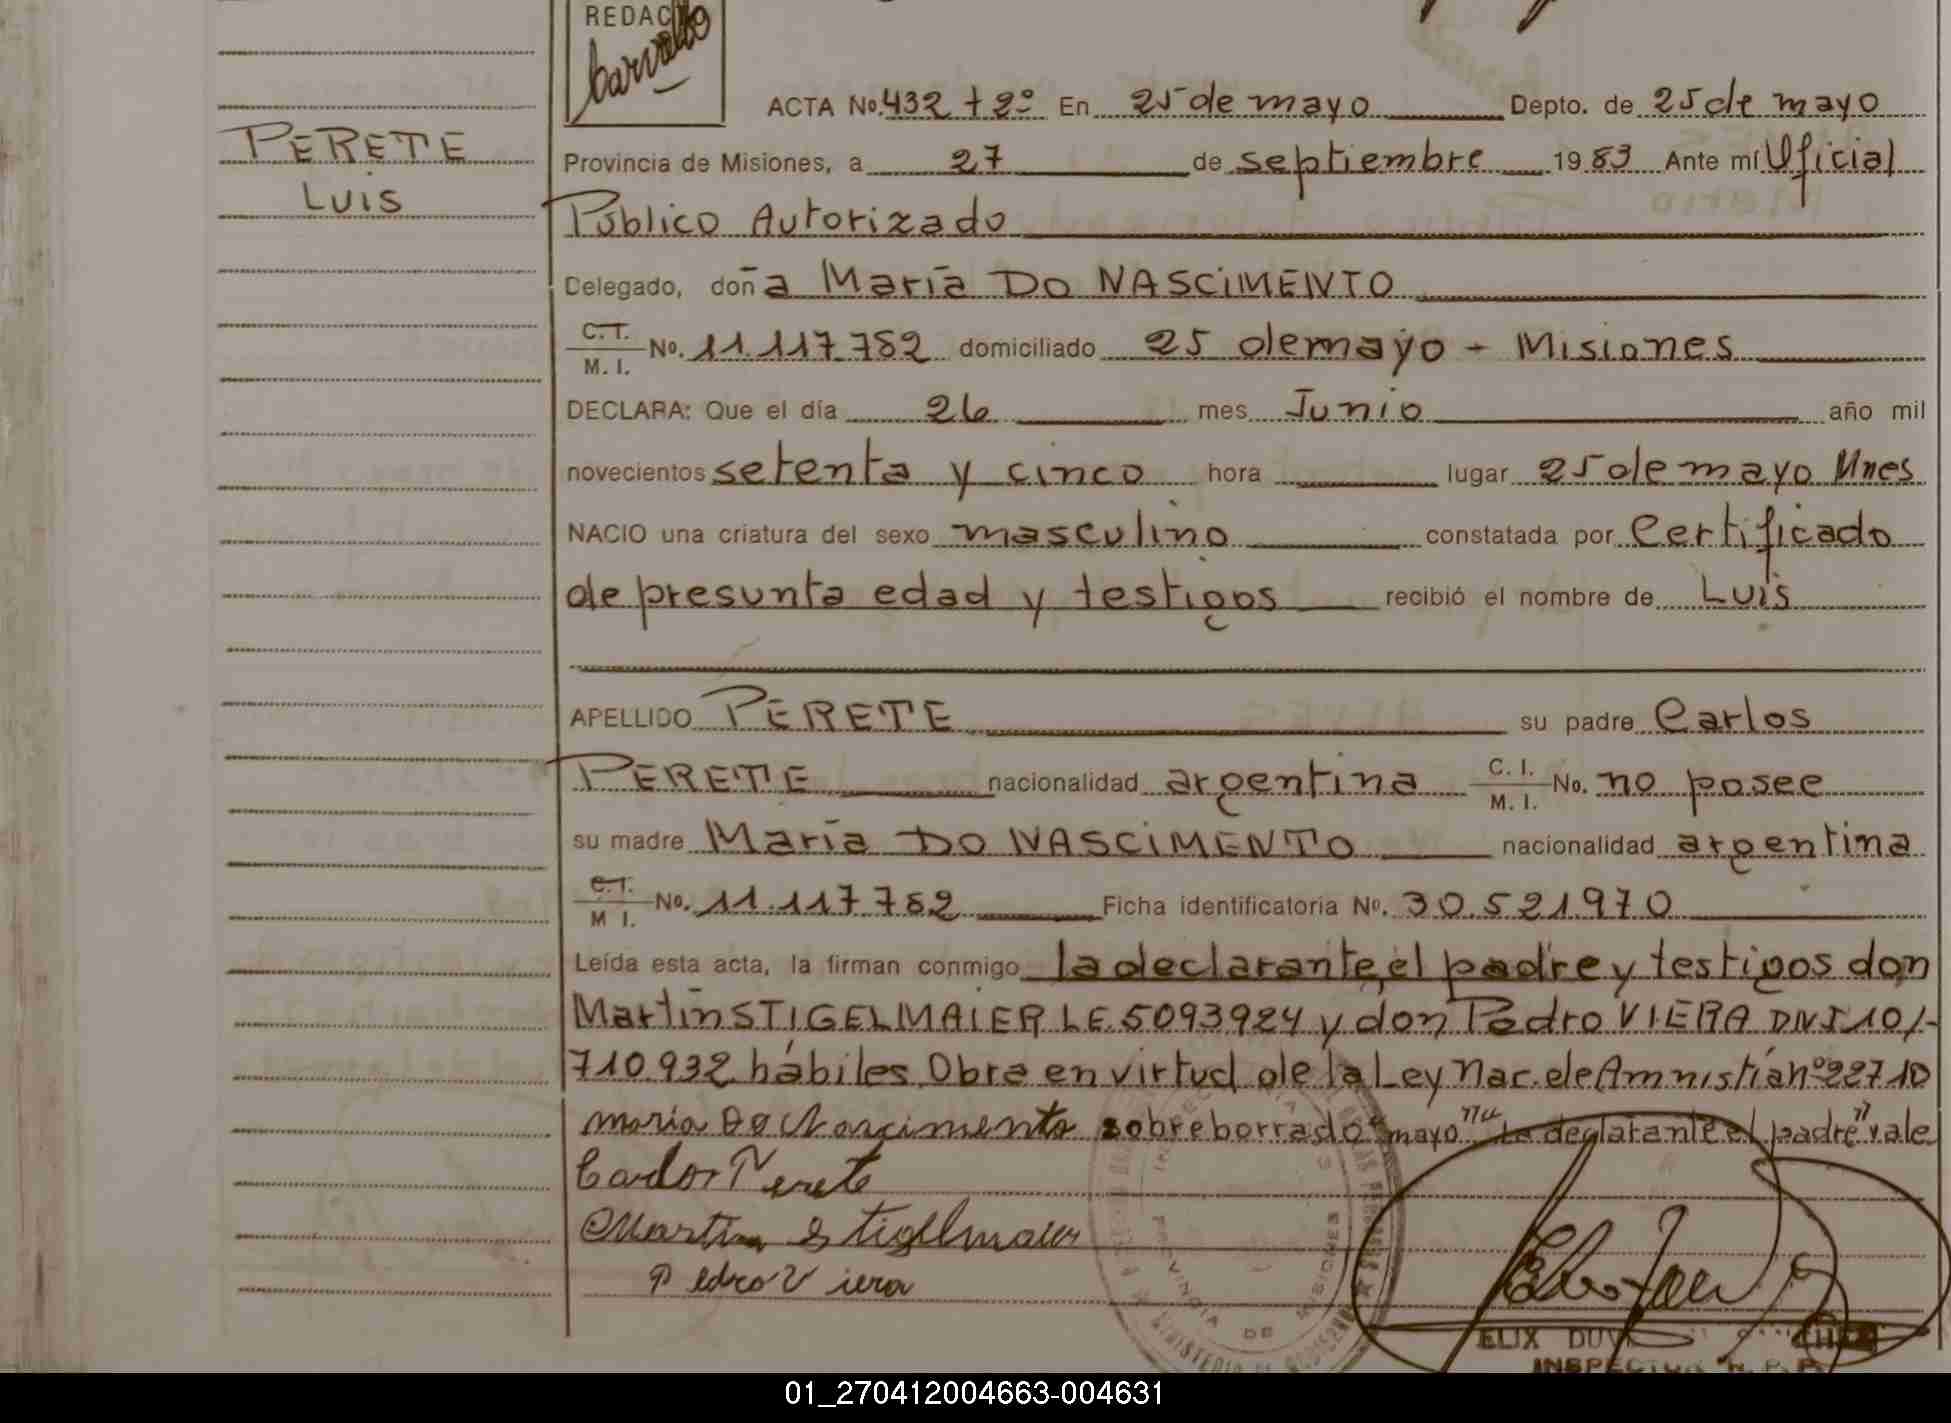 REDAC
Carvallo
ACTA No. 432 t 2º En 25 de mayo Depto. de 25 de mayo
PERETE
Luis
Provincia de Misiones, a 27 de septiembre 1983 Ante mí Oficial
Público Autorizado
Delegado, doña María DO NASCIMENTO
C.I. M. I. No. 11.117.782 domiciliado 25 de mayo - Misiones
DECLARA: Que el día 26 mes Junio año mil
novecientos setenta y cinco hora lugar 25 de mayo Mnes
NACIO una criatura del sexo masculino constatada por Certificado
de presunta edad y testigos recibió el nombre de Luis
APELLIDO PERETE su padre Carlos
PERETE nacionalidad argentina C. I. M. I. No. no posee
su madre María DO NASCIMENTO nacionalidad argentina
C.I. M I. No. 11.117.782 Ficha identificatoria No. 30.521.970
Leída esta acta, la firman conmigo la declarante, el padre y testigos don
Martín STIGELMAIER L.E. 5093924 y don Pedro VIERA DNI 10/-
710.932 hábiles. Obra en virtud de la Ley Nac. de Amnistía nº 22710
maria Do Nascimento sobreborrado "mayo" "la declarante el padre" vale
Carlos Perete
Martin Stigelmaier
Pedro Viera
PROVINCIA DE MISIONES
MINISTERIO DE GOBIERNO
ELIX DUV
INSPECTOR R. P. P.
01_270412004663-004631